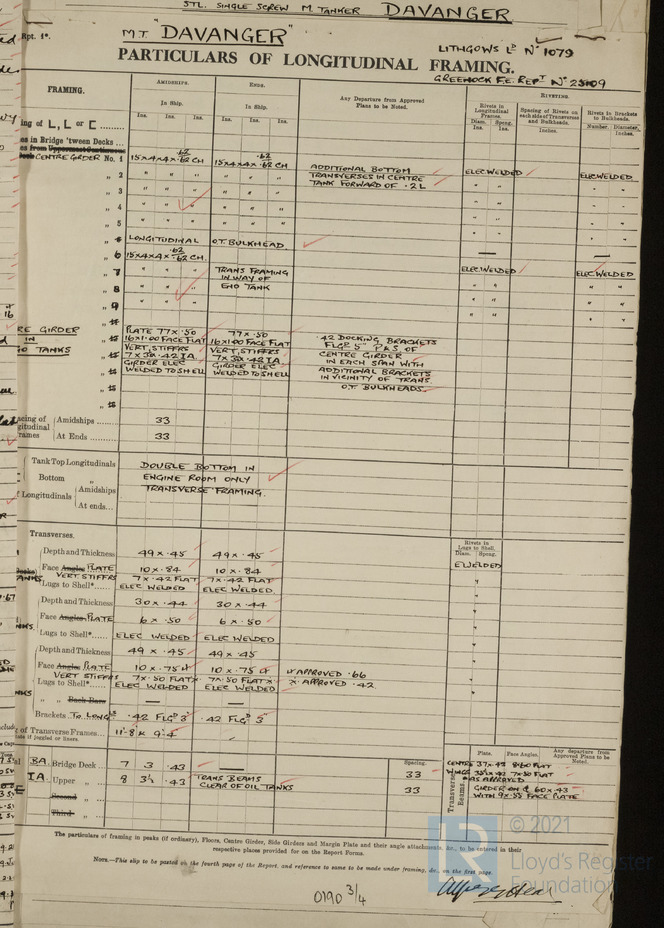 STL. SINGLE SCREW M. TANKER DAVANGER
Rpt. 1*.
M.T "DAVANGER"
LITHGOWS LD No 1079
PARTICULARS OF LONGITUDINAL FRAMING.
GREENOCK F.E. REPT No
FRAMING.
AMIDSHIPS.
ENDS.
Any Departure from Approved Plans to be Noted.
RIVETING.
In Ship.
In Ship.
Rivets in Longitudinal Frames.
Spacing of Rivets on each side of Transverses and Bulkheads.
Rivets in Brackets to Bulkheads.
Ins. Ins. Ins. Ins. Ins. Ins.
Diam. Ins. Spcng. Ins.
Inches.
Number. Diameter, Inches.
ing of L, L or C
es in Bridge 'tween Decks
CENTRE GIRDER No. 1 15x4x4x.62 CH .62 15x4x4x.62 CH .62
„ 2 " " " " " " ADDITIONAL BOTTOM ELEC WELDED ELEC WELDED
TRANSVERSES IN CENTRE
„ 3 " " " " " " TANK FORWARD OF .2L " " " "
„ 4 " " " " " " " " " "
„ 5 " " " " " " " " " "
LONGITUDINAL O.T. BULKHEAD
„ 6 15x4x4x.62 CH. .62
„ 7 " " " TRANS FRAMING ELEC WELDED ELEC WELDED
IN WAY OF
„ 8 " " " TANK " " " "
„ 9 " " " " " " "
RE GIRDER
IN
TANKS
PLATE 77x.50 77x.50 .42 DOCKING BRACKETS
16x1.00 FACE FLAT 16x1.00 FACE FLAT FLGD 5" P&S OF
VERT. STIFFRS VERT. STIFFRS CENTRE GIRDER
IN EACH SPAN WITH
GIRDER ELEC GIRDER ELEC ADDITIONAL BRACKETS
WELDED TO SHELL WELDED TO SHELL IN VICINITY OF TRANS.
O.T. BULKHEADS.
acing of gitudinal rames Amidships 33
At Ends 33
Tank Top Longitudinals DOUBLE BOTTOM IN
Bottom „ ENGINE ROOM ONLY
Longitudinals Amidships TRANSVERSE FRAMING.
At ends
Transverses.
Rivets in Lugs to Shell.
Diam. Spcng.
Depth and Thickness 49 x .45 49 x .45
Face Angles PLATE 10 x .84 10 x .84 E WELDED
VERT STIFFRS 7 x .42 FLAT 7 x .42 FLAT
Lugs to Shell* ELEC WELDED ELEC WELDED. "
Depth and Thickness 30 x .44 30 x .44 "
Face Angles PLATE 6 x .50 6 x .50 "
Lugs to Shell* ELEC WELDED ELEC WELDED "
Depth and Thickness 49 x .45 49 x .45 "
Face Angles PLATE 10 x .75 10 x .75 APPROVED .66
VERT STIFFRS 7 x .50 FLAT x 7 x .50 FLAT x x APPROVED .42
Lugs to Shell* ELEC WELDED ELEC WELDED "
„ „ Back Bars — —
Brackets TO LONGLS .42 FLGD 3 .42 FLGD 3
of Transverse Frames 11'-8 x 9'-4
Spacing.
Plate. Face Angles. Any departure from Approved Plans to be Noted.
BA. Bridge Deck 7 3 .43 — 33
IA. Upper „ 8 3½ .43 TRANS BEAMS 33
CLEAR OF OIL TANKS
Second „
Third „
Transverse Beams
CENTRE 37x.42 8x.60 FLAT
7x.50 FLAT
AS APPROVED
GIRDER ON 60x.43
WITH 9x.55 FACE PLATE
The particulars of framing in peaks (if ordinary), Floors, Centre Girder, Side Girders and Margin Plate and their angle attachments, &c., to be entered in their
respective places provided for on the Report Forms.
NOTE.—This slip to be pasted on the fourth page of the Report, and reference to same to be made under framing, &c., on the first page.
0190 3/4
© 2021
Lloyd's Register
Foundation
LR